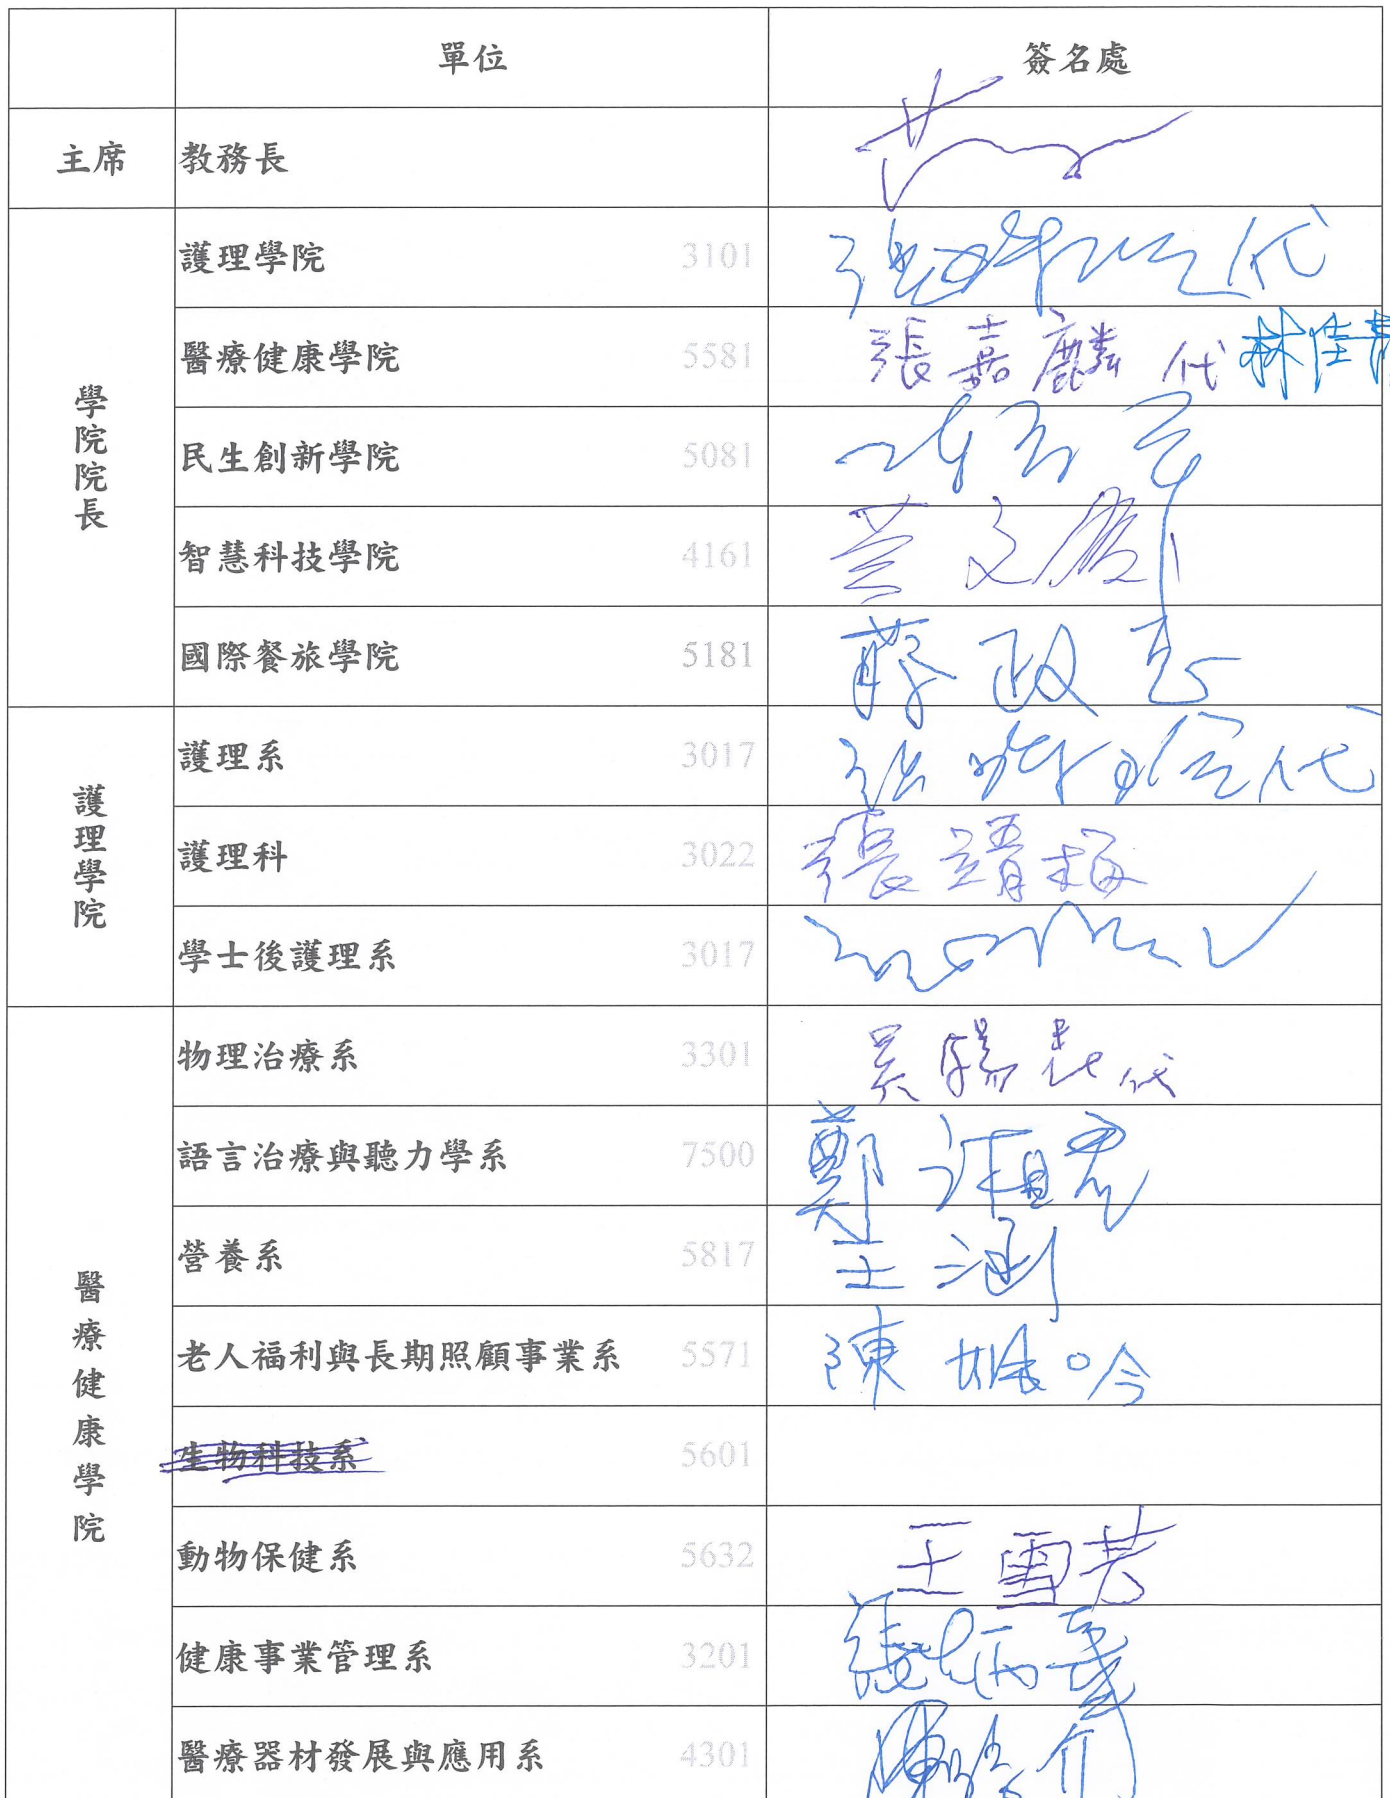 單位 簽名處
主席 教務長
學院院長
護理學院 3101 代
醫療健康學院 5581 張嘉麟 代 林佳
民生創新學院 5081
智慧科技學院 4161 文
國際餐旅學院 5181 蔡政
護理學院
護理系 3017 代
護理科 3022 張靖梅
學士後護理系 3017
醫療健康學院
物理治療系 3301 吳 代
語言治療與聽力學系 7500 鄭
營養系 5817 王涵
老人福利與長期照顧事業系 5571 陳 吟
生物科技系 5601
動物保健系 5632 王雪芳
健康事業管理系 3201 張
醫療器材發展與應用系 4301 陳 介